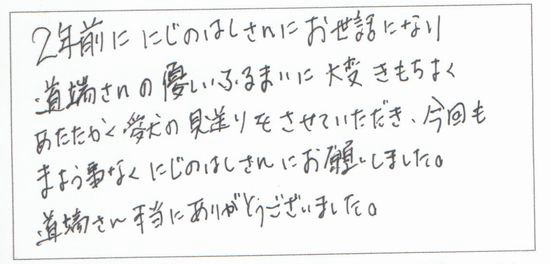 2年前に にじのはしさんに お世話になり
道端さんの優しいふるまいに 大変 きもちよく
あたたかく 愛犬の見送りをさせていただき、今回も
まよう事なく にじのはしさんにお願いしました。
道端さん 本当に ありがとうございました。